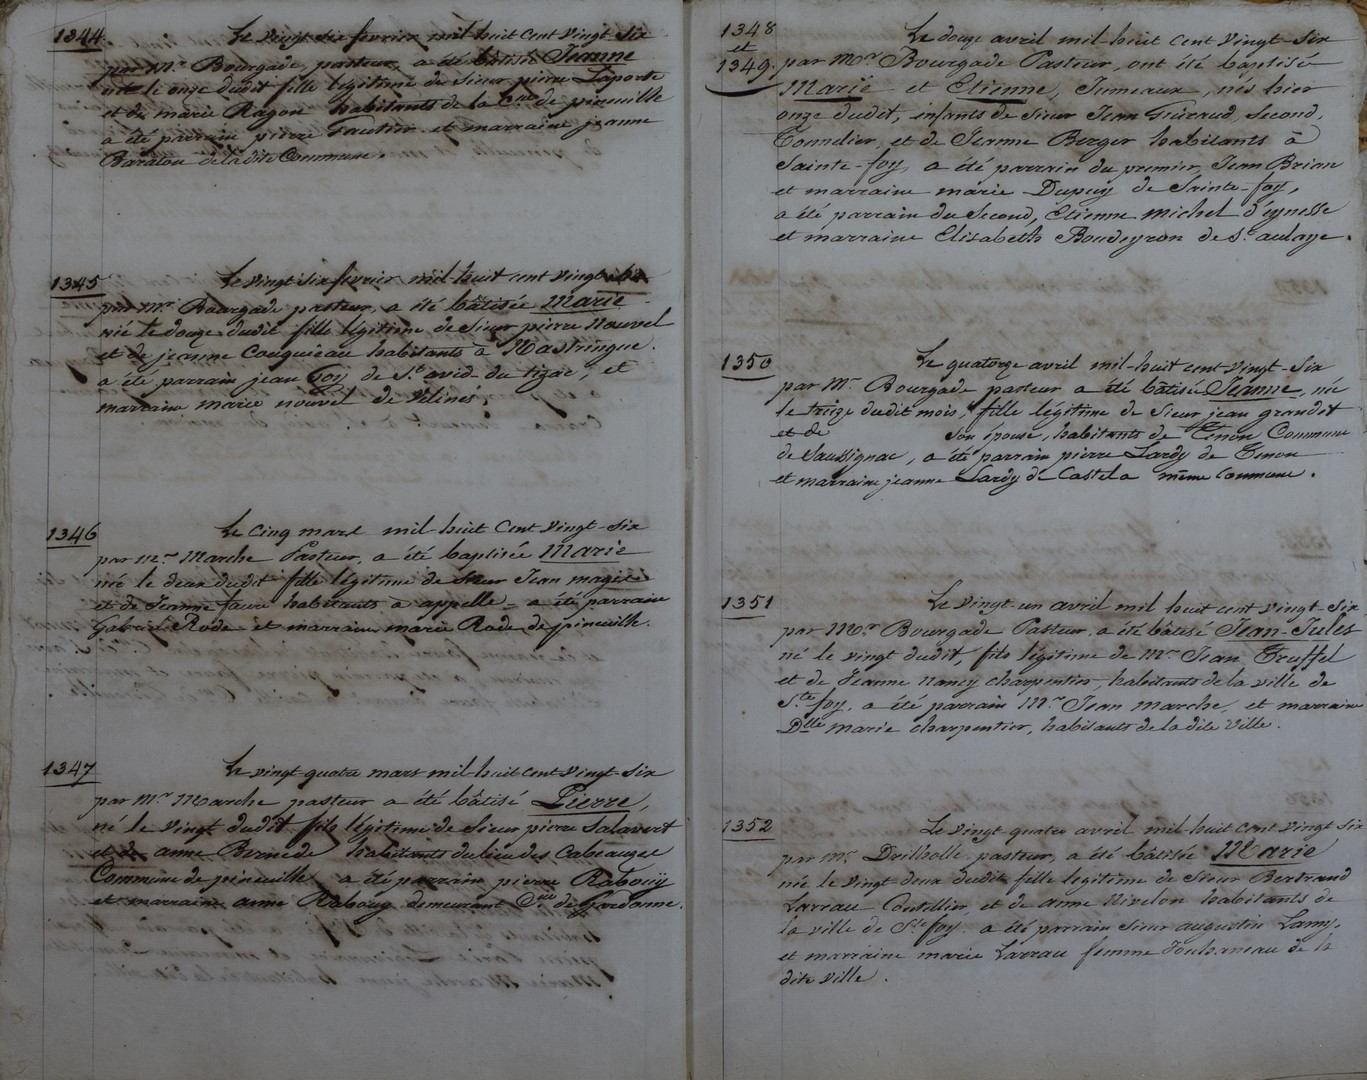 1344
Le vingt six fevrier mil huit Cent vingt-six
par Mr. Bourgade, pasteur, a été bâtisée Jeanne
née le onze dudit fille légitime de Sieur pierre Laporte
et de marie Ragon habitants de la Cne de pineuilh
a été parrain pierre Gautier et marraine jeanne
de la dite Commune.
1345
Le vingt six fevrier mil-huit cent vingt six
par mr. Bourgade pasteur, a été bâtisée Marie
née le douze dudit fille légitime de Sieur pierre Nouvel
et de jeanne Couquieau habitants à Mastringue.
a été parrain jean Goy de St. avid du tizac, et
marraine marie nouvel de Vélines.
1346
Le Cinq mars mil-huit Cent vingt-six
par mr. Marche Pasteur, a été baptisée Marie
née le deux dudit fille légitime de Sieur Jean magie
et de Jeanne faure habitants à appelle - a été parrain
Gabriel Rode et marraine marie Rode de pineuilh.
1347
Le vingt quatre mars mil-huit cent vingt-six
par Mr. Marche pasteur a été bâtisé Pierre,
né le vingt dudit fils légitime de Sieur pierre Salavert
et de anne Bernede habitants du lieu des Cabeauzes
Commune de pineuilh a été parrain pierre Rabouÿ
et marraine anne Rabouy demeurant Cne de Gardonne.
1348
et
1349.
Le douze avril mil-huit Cent vingt-six
par Mor. Bourgade Pasteur, ont été baptisé
Marie et Etienne, Jumeaux, nés hier
onze dudit, enfants de Sieur Jean Guiraud, Second,
Tonnelier, et de Jeanne Berger habitants à
Sainte-foy, a été parrain du premier, Jean Brian
et marraine marie Dupuy de Sainte-foy,
a été parrain du Second, Etienne michel d'eynesse
et marraine Elisabeth Boudeyron de St. aulaye.
1350
Le quatorze avril mil-huit cent vingt-six
par Mr. Bourgade pasteur a été bâtisée Jeanne, née
le treize dudit mois, fille légitime de Sieur jean grandet
et de son épouse, habitants de Tenon Commune
de Saussignac, a été parrain pierre Lardy de Tenon
et marraine jeanne Lardy de Castela même Commune.
1351
Le vingt un avril mil huit cent vingt-six
par Mor. Bourgade Pasteur, a été bâtisé Jean-Jules
né le vingt dudit, fils légitime de Mr. Jean Truffel
et de Jeanne nancy charpentier, habitants de la ville de
Ste foy, a été parrain Mr. Jean Marche, et marraine
Dlle marie charpentier, habitants de la dite Ville.
1352
Le vingt quatre avril mil-huit cent vingt six
par mr. Drilholle pasteur, a été bâtisée Marie
née le vingt deux dudit fille légitime de Sieur Bertrand
Larrau Coutellier et de anne Nivelon habitants de
la ville de Ste foy a été parrain Sieur augustin Lamy,
et marraine marie Larrau femme de la
dite ville.